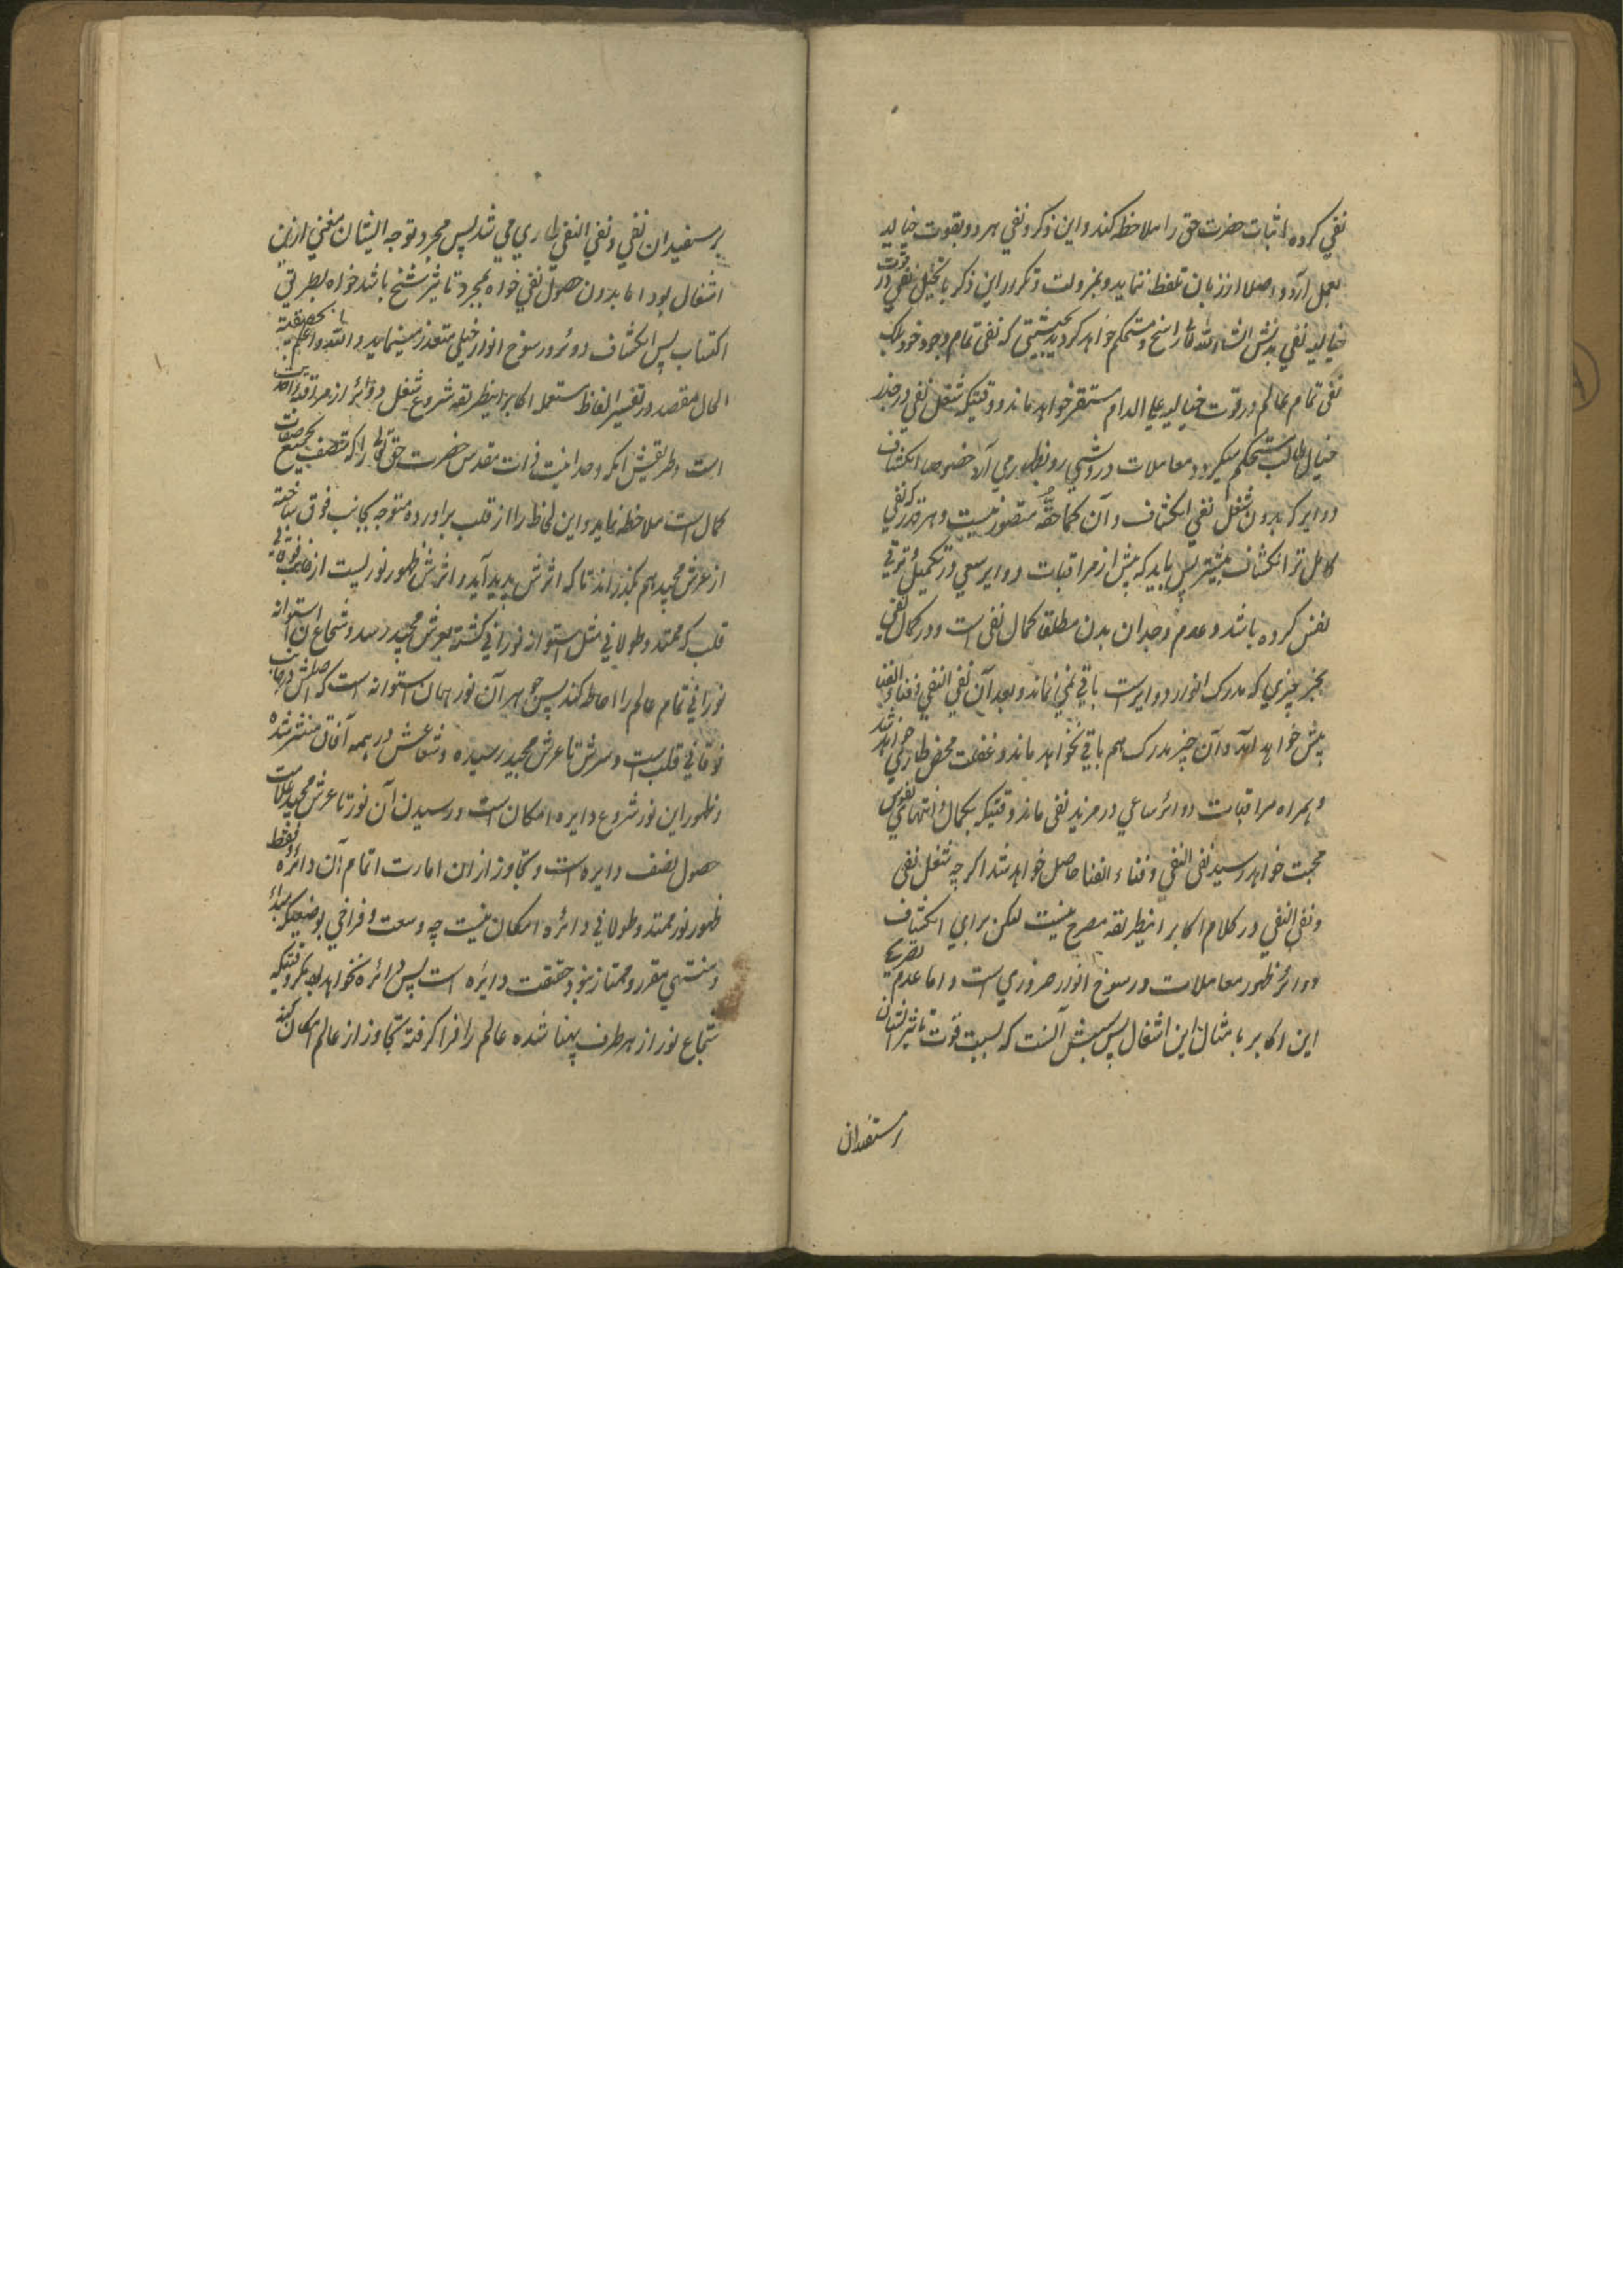 نفی کرده اثبات حضرت حق را ملاحظه کند و این ذکر و نفی هر دو بقوت خیالیه
بعمل آرد و اصلا از زبان تلفظ ننماید و بمزاولت و تکرار این ذکر با تخیل نفی در قوت
خیالیه نفی بدنش انشاء الله تعالی راسخ و مستحکم خواهد گردید بحیثیتی که نفی تمام وجود خود بلکه
نفی تمام عالم در قوت خیالیه علی الدام مستقر خواهد ماند و وقتیکه شغل نفی در جذر
خیال طالب مستحکم میگردد معاملات درویشی رو بظهور می آرد خصوصا انکشاف
دوایر که بدون شغل نفی انکشاف آن کما حقه متصور نیست و هر قدر که نفی
کامل تر انکشاف بیشتر پس باید که پیش از مراقبات دوایر سعی در تکمیل و ترقی
نفس کرده باشد و عدم وجدان بدن مطلقا کمال نفی است و در کمال نفی
بجز چیزی که مدرک انوار دوایرست باقی نمی ماند و بعد آن نفی النفی و فناء الفنا
پیش خواهد آمد و آن چیز مدرک هم باقی نخواهد ماند و غفلت محض طاری خواهد شد
و همراه مراقبات دوائر ساعی در مزید نفی ماند وقتیکه بکمال و انتهای نفی بس
محبت خواهد رسید نفی النفی و فناء الفنا حاصل خواهد شد اگر چه شغل نفی
و نفی النفی در کلام اکابر اینطریقه مصرح نیست لکن برای انکشاف
دوائر ظهور معاملات و رسوخ انوار ضروری است و اما عدم تصریح
این اکابر بامثال این اشغال پس سببش آنست که بسبب قوت تاثیر ایشان
بر مستفیدان
بر مستفیدان نفی و نفی النفی طاری می شد پس مجرد توجه ایشان مغنی ازین
اشغال بود اما بدون حصول نفی خواه بمجرد تاثیر شیخ باشد خواه بطریق
اکتساب پس انکشاف دوائر و رسوخ انوار خیلی متعذر مینماید و الله اعلم بالحقیقة
الحال مقصد در تفسیر الفاظ مستعمله اکابر اینطریقه شروع شغل دوائر از مراقبه احدیت
است و طریقش آنکه وحدانیت ذات مقدس حضرت حق تعالی را که متصف بجمیع صفات
کمال است ملاحظه نماید و این لحاظ را از قلب برآورده متوجه بجانب فوق ساخته
از عرش مجید هم بگذراند تا که اثرش پدید آید و اثرش ظهور نوریست از جانب فوقانی
قلب که ممتد و طولانی مثل استوانه نورانی گشته بعرش مجید رسد و شعاع آن استوانه
نورانی تمام عالم را احاطه کند پس جوهر آن نور همان استوانه است که اصلش در جانب
فوقانی قلب است و سرش تا عرش مجید رسیده و شعاعش در همه آفاق منتشر شده
و ظهور این نور شروع دایره امکان است و رسیدن آن نور تا عرش مجید علامت
حصول نصف دایره است و تجاوز از ان امارت اتمام آن دائره و فقط
ظهور نور ممتد و طولانی دائره امکان نیست چه وسعت و فراخی بوضعیکه مبدأ
و منتهی مقرر و ممتاز نبود حقیقت دایره است پس دائره نخواهد بود مگر وقتیکه
شعاع نور از هر طرف پهنا شده عالم را فرا گرفته تجاوز از عالم امکان کند